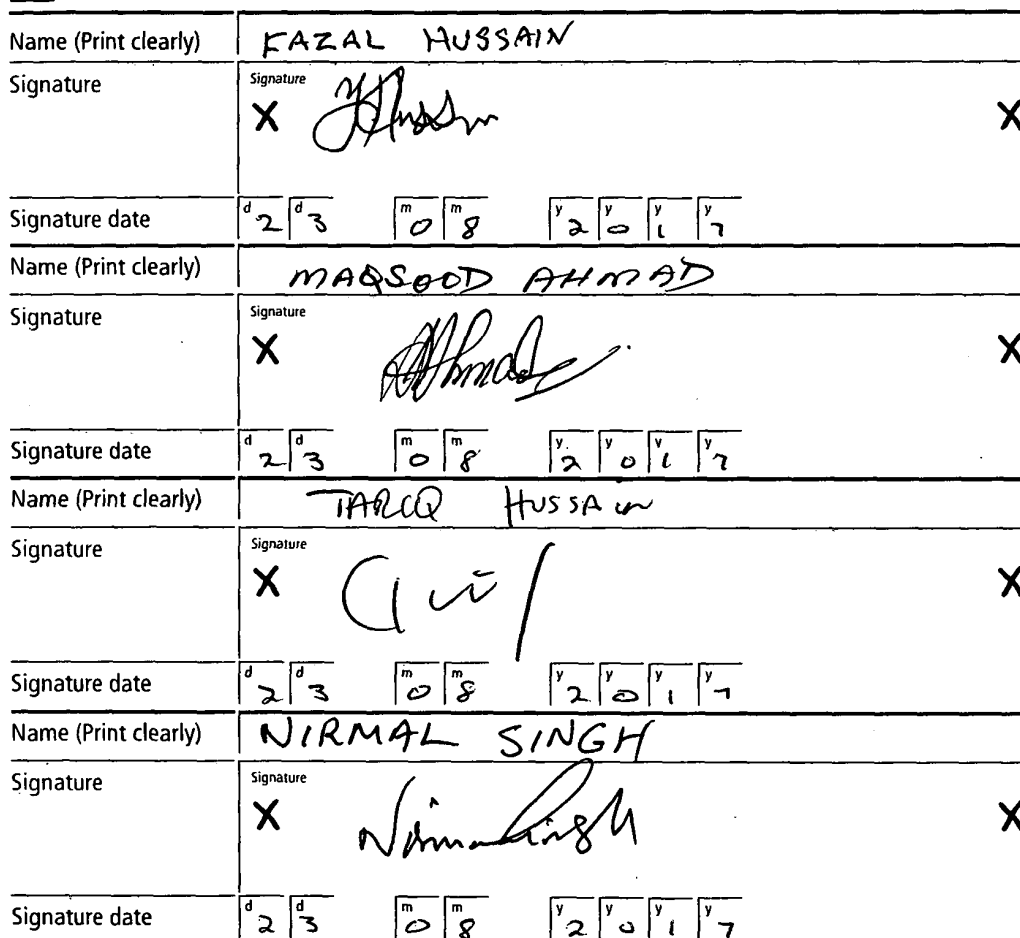 Name (Print clearly) FAZAL HUSSAIN
Signature Signature
X X
Signature date d 2 d 3 m 0 m 8 y 2 y 0 y 1 y 7
Name (Print clearly) MAQSOOD AHMAD
Signature Signature
X Ahmad X
Signature date d 2 d 3 m 0 m 8 y 2 y 0 y 1 y 7
Name (Print clearly) TARIQ HUSSAIN
Signature Signature
X X
Signature date d 2 d 3 m 0 m 8 y 2 y 0 y 1 y 7
Name (Print clearly) NIRMAL SINGH
Signature Signature
X Nirmal Singh X
Signature date d 2 d 3 m 0 m 8 y 2 y 0 y 1 y 7